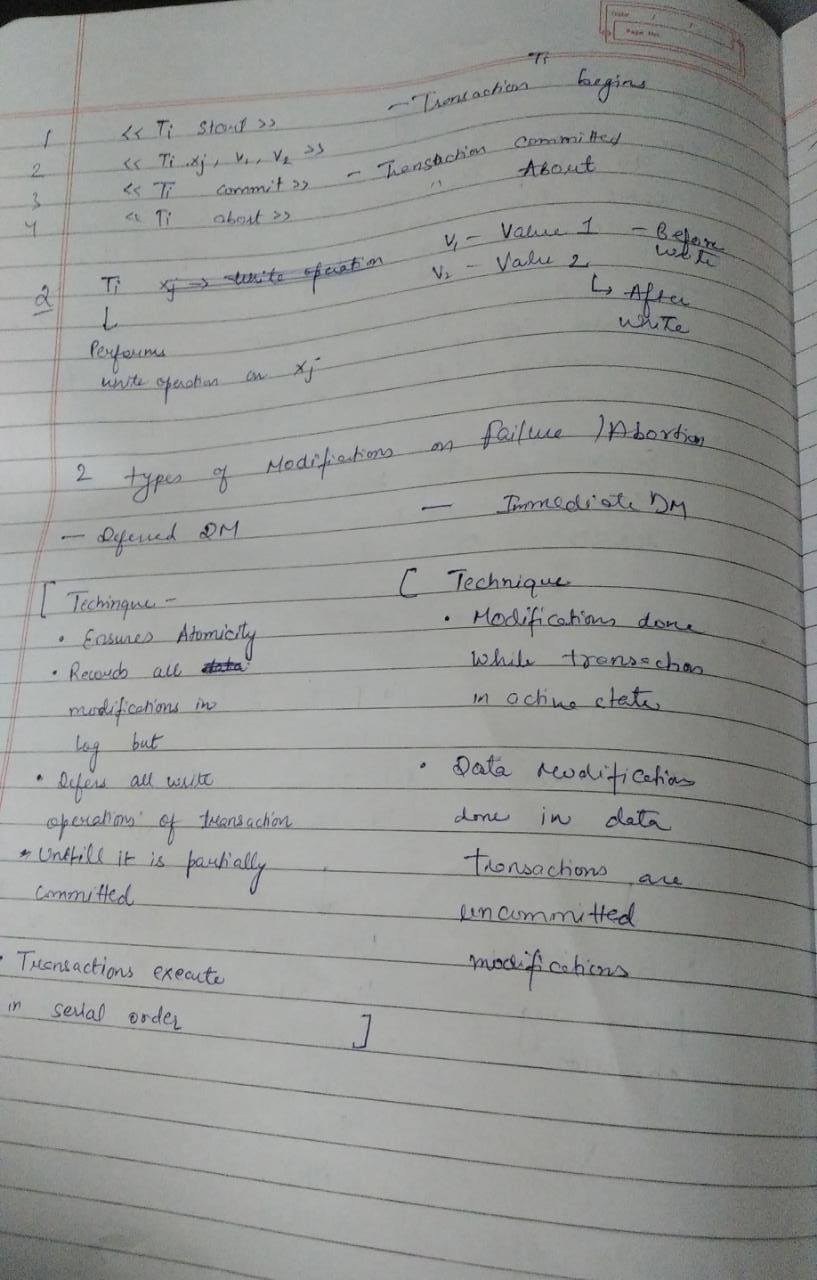 Ti
1 << Ti start >> - Transaction begins
2 << Ti xj, V1, V2 >>
3 << Ti commit >> - Transaction committed
4 << Ti abort >> " About
2 Ti xj => write operation V1 - Value 1 - Before write
V2 - Value 2
↳ After write
Performs
write operation on xj
2 types of Modifications on failure / Abortion
- Deferred DM - Immediate DM
[ Techinque -
• Ensures Atomicity
• Records all data
modifications in
log but
• Defers all write
operations of transaction
• Untill it is partially
committed
• Transactions execute
in serial order ]
[ Technique
• Modifications done
while transaction
in active state
• Data modification
done in data
transactions are
uncommitted
modifications